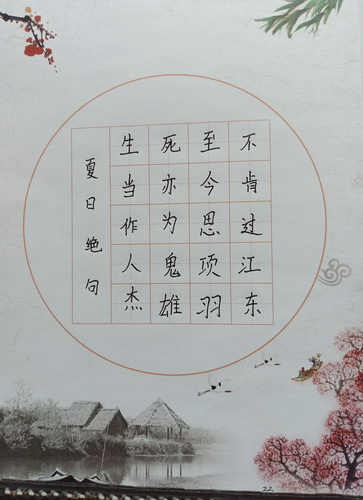 夏日绝句
生当作人杰
死亦为鬼雄
至今思项羽
不肯过江东
22